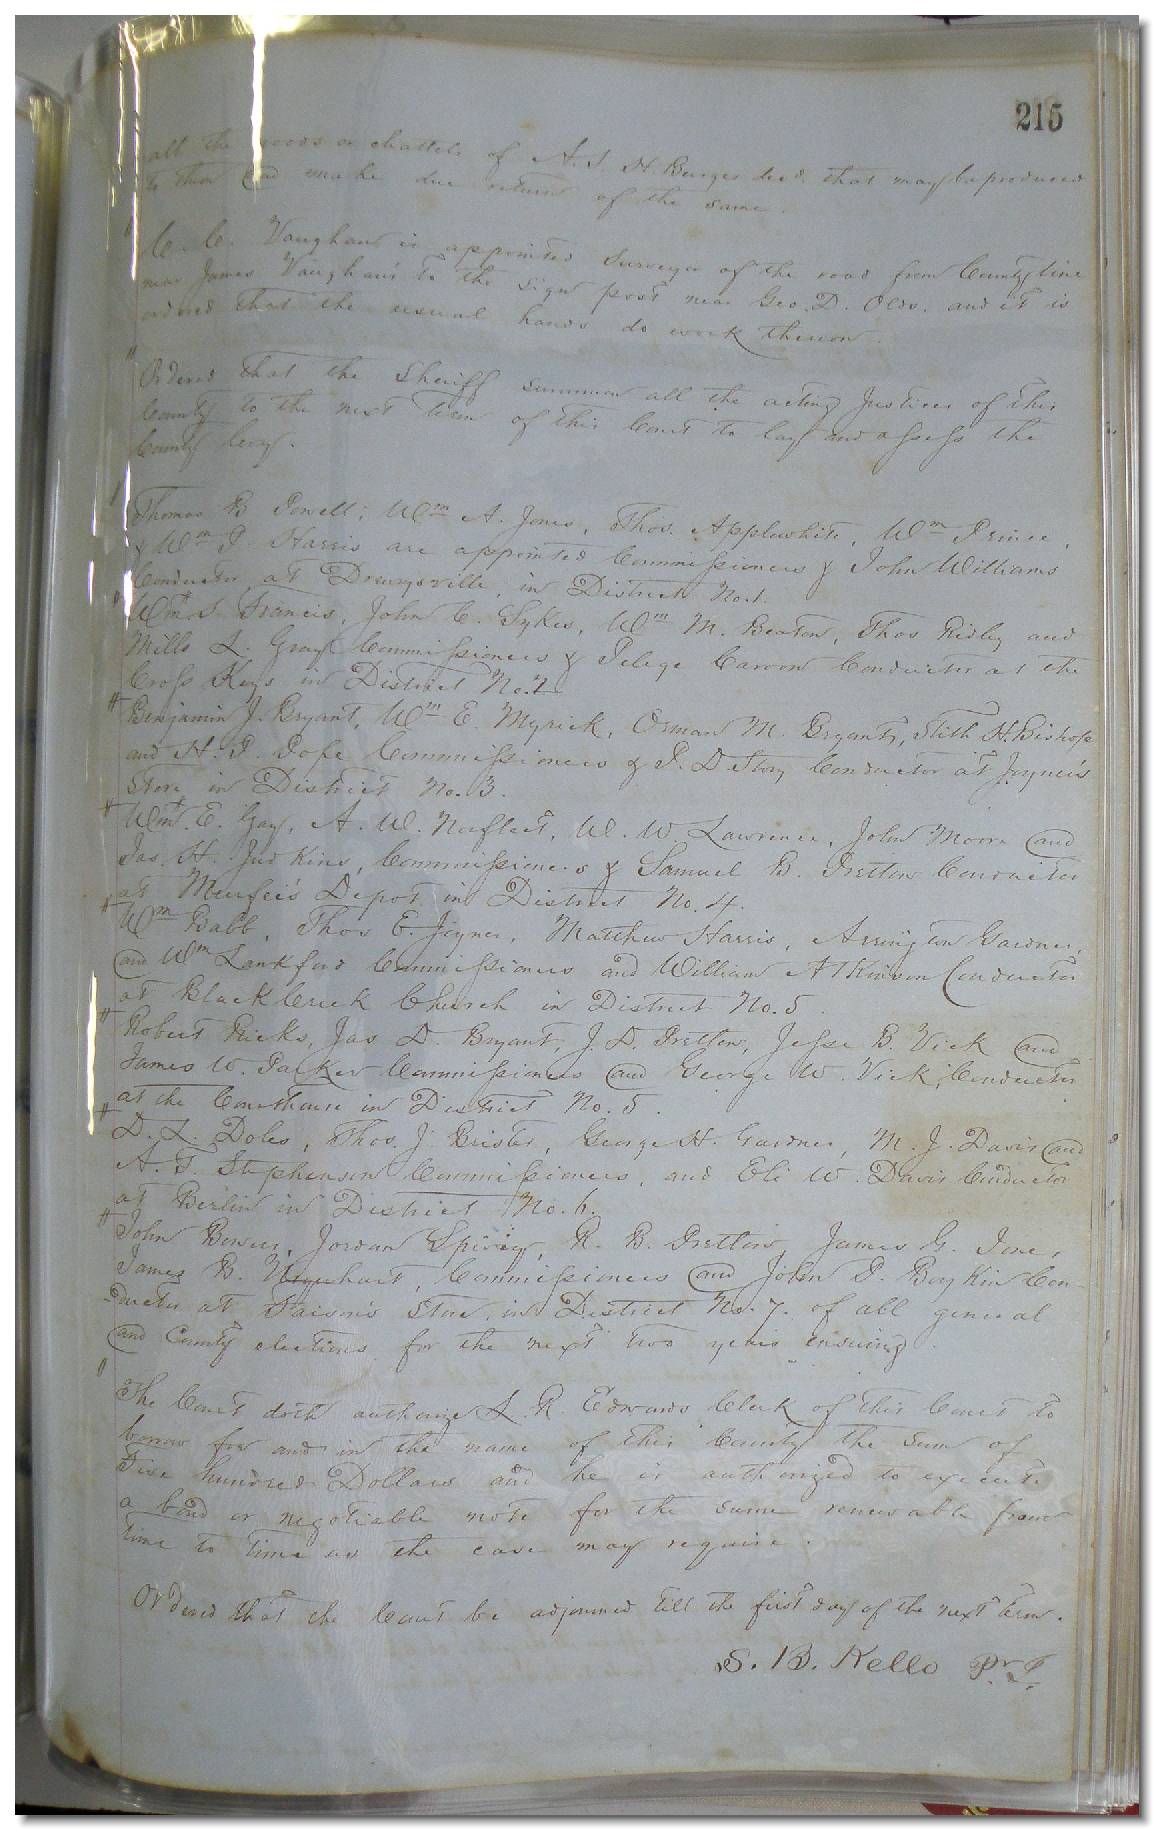 215
all the goods or chattels of A. S. H. Burges decd. that may be produced
to them and make due return of the same.
C. C. Vaughan is appointed Surveyor of the road from County line
near James Vaughan's to the Sign post near Geo. D. Olds. and it is
ordered that the usual hands do work thereon.
Ordered that the Sheriff summon all the acting Justices of this
County to the next term of this Court to lay and assess the
County levy.
Thomas B Powell, Wm A. Jones, Thos. Applewhite, Wm Prince,
& Wm P. Harris are appointed Commissioners & John Williams
Conductor at Drewrysville, in District No. 1.
Wm. S. Francis, John C. Sykes, Wm M. Beaton, Thos Ridley and
Mills L. Gray Commissioners & Pelege Carson Conductor at the
Cross Keys in District No. 2
Benjamin J. Bryant, Wm E. Myrick, Orman M. Bryant, Stith H. Bishop
and H. P. Pope Commissioners & P. D Story Conductor at Joyner's
Store in District No. 3.
Wm. E. Gay, A. W. Norfleet, W. W Lawrence, John Moore and
Jas. H. Judkins, Commissioners & Samuel B. Pretlow Conductor
at Murfee's Depot in District No. 4.
Wm Babb, Thos E. Joyner, Matthew Harris, Arrington Gardner,
and Wm Lankford Commissioners and William Atkinson Conductor
at Black Creek Church in District No. 5.
Robert Ricks, Jas D. Bryant, J. D. Pretlow, Jesse B. Vick and
James W. Parker Commissioners and George W. Vick, Conductor
at the Courthouse in District No. 5.
D. L. Doles, Thos. J. Bristo, George H. Gardner, M. J. Davis and
A. T. Stephenson Commissioners, and Eli W. Davis Conductor
at Berlin in District No. 6.
John Bowers, Jordan Spivey, R. B. Pretlow, James G. Jones,
James B. Urquhart, Commissioners and John D. Boykin Con-
ductor at Faison's Store, in District No. 7. of all general
and County elections for the next two years ensuing.
The Court doth authorize L. R. Edwards Clerk of this Court to
borrow for and in the name of this County the Sum of
Five hundred Dollars and he is authorized to execute
a bond or negotiable note for the same renewable from
time to time as the case may require.
Ordered that the Court be adjourned till the first day of the next term.
S. B. Kello Pr. J.